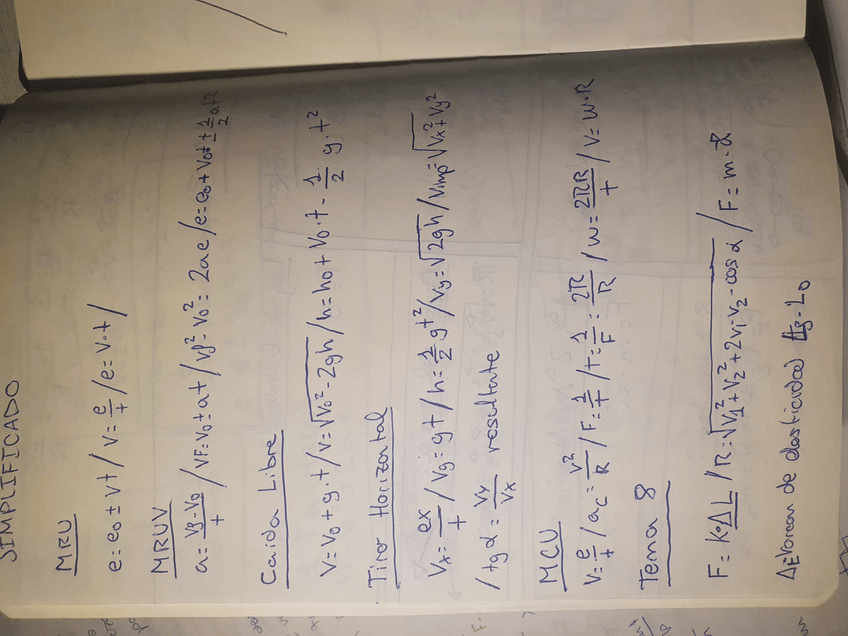 SIMPLIFICADO
MRU
e = e0 ± vt / v = e/t / e = v·t /
MRUV
a = vf-v0/t / vF = v0 ± at / vf² - v0² = 2ae / e = e0 + v0t ± 1/2 at²
Caida Libre
V = V0 + g·t / V = √V0² - 2gh / h = h0 + V0·t - 1/2 g·t²
Tiro Horizontal
Vx = ex/t / Vy = gt / h = 1/2 gt² / Vy = √2gh / Vimp = √Vx² + Vy²
/ tg α = Vy/Vx resultate
MCU
V = e/t / ac = v²/R / F = 1/t / t = 1/F = 2πR/R / W = 2πR/t / V = W·R
Tema 8
F = K·ΔL / R = √V1² + V2² + 2V1·V2·cos α / F = m·a
de elasticidad - L0